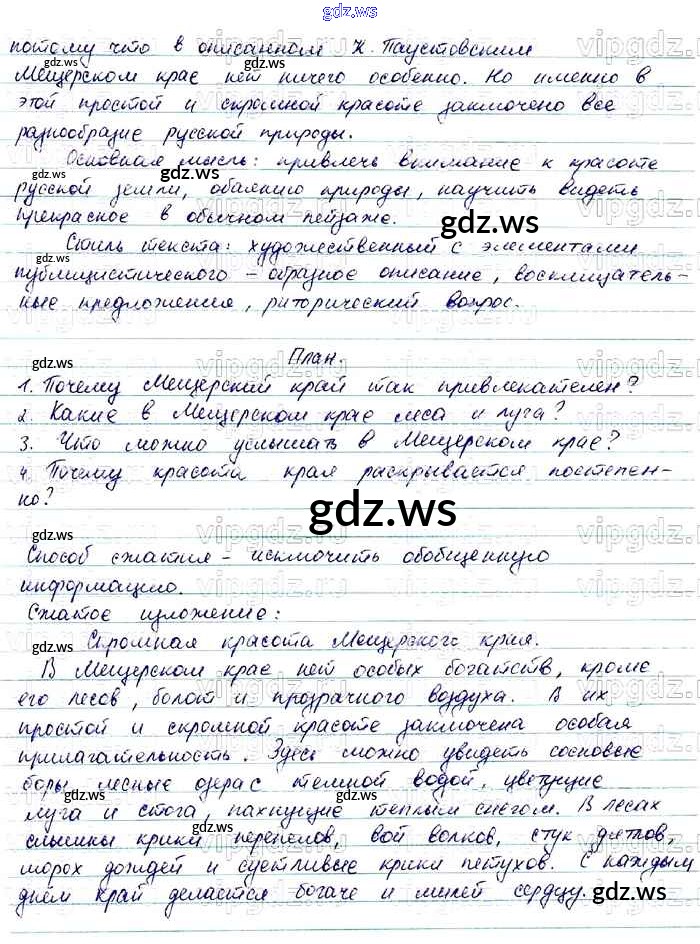 gdz.ws
потому что в описанном К. Паустовским
Мещерском крае нет ничего особенно. Но именно в
этой простой и скромной красоте заключено все
разнообразие русской природы.
Основная мысль: привлечь внимание к красоте
русской земли, обаянию природы, научить видеть
прекрасное в обычном пейзаже.
Стиль текста: художественный с элементами
публицистического – образное описание, восклицатель-
ные предложения, риторический вопрос.
План.
1. Почему Мещерский край так привлекателен?
2. Какие в Мещерском крае леса и луга?
3. Что можно услышать в Мещерском крае?
4. Почему красота края раскрывается постепен-
но?
gdz.ws
Способ сжатия – исключить обобщенную
информацию.
Сжатое изложение:
Скромная красота Мещерского края.
В Мещерском крае нет особых богатств, кроме
его лесов, болот и прозрачного воздуха. В их
простой и скромной красоте заключена особая
прилагательность. Здесь можно увидеть сосновые
боры, лесные озера с темной водой, цветущие
луга и стога, пахнущие теплым снегом. В лесах
слышны крики перепелов, вой волков, стук дятлов,
шорох дождей и суетливые крики петухов. С каждым
днём край делается богаче и милей сердцу.
gdz.ws